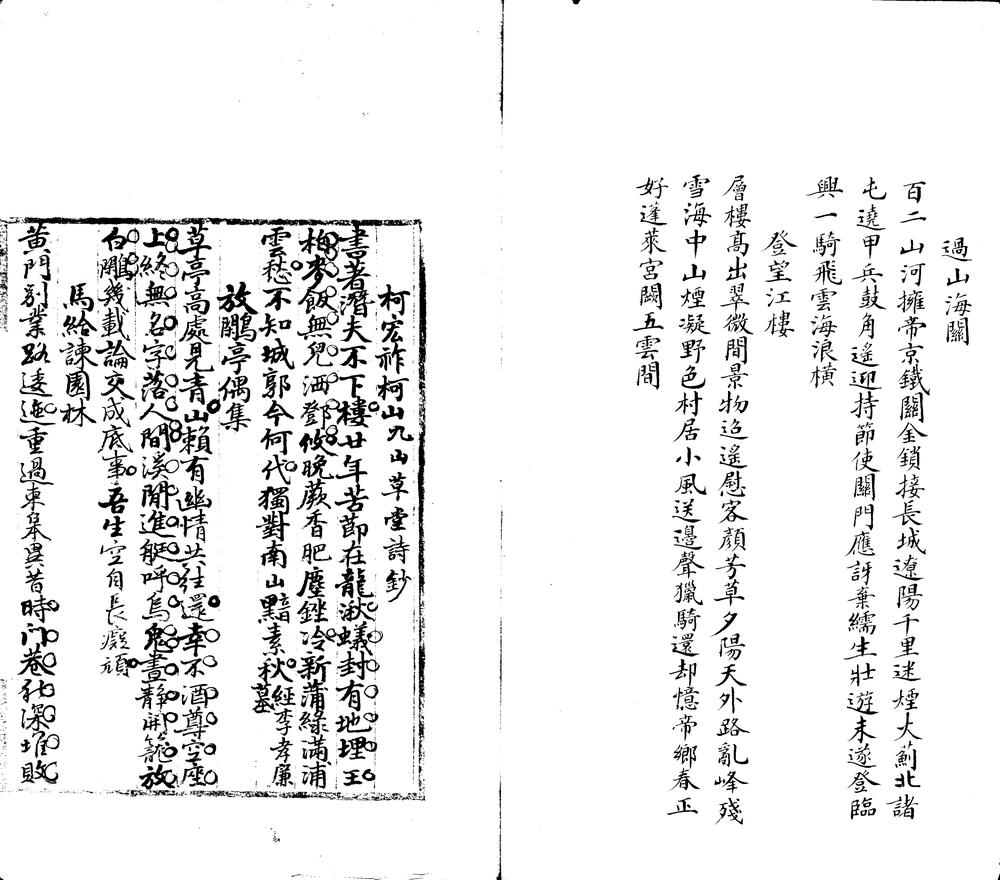 過山海關
百二山河擁帝京鐵關金鎖接長城遼陽千里迷煙火薊北諸
屯遶甲兵鼓角遙迎持節使關門應訝棄繻生壯遊未遂登臨
興一騎飛雲海浪橫
登望江樓
層樓高出翠微間景物迢遙慰客顏芳草夕陽天外路亂峰殘
雪海中山煙凝野色村居小風送邊聲獵騎還却憶帝鄉春正
好蓬萊宮闕五雲間
柯宏祚柯山九山草堂詩鈔
書著潛夫不下樓廿年苦節在龍湫蟻封有地埋王
梅麥飯無兒洒鄧攸晚蕨香肥塵銼冷新蒲綠滿浦
雲愁不知城郭今何代獨對南山黯素秋經李孝廉墓
放鷳亭偶集
草亭高處見青山賴有幽情共往還幸不酒尊空座
上終無名字落人間溪閒進艇呼烏鬼晝靜開籠放
白鷳幾載論交成底事吾生空自長癡頑
馬給諫園林
黃門別業路逶迤重過東皋異昔時門巷秋深堆敗